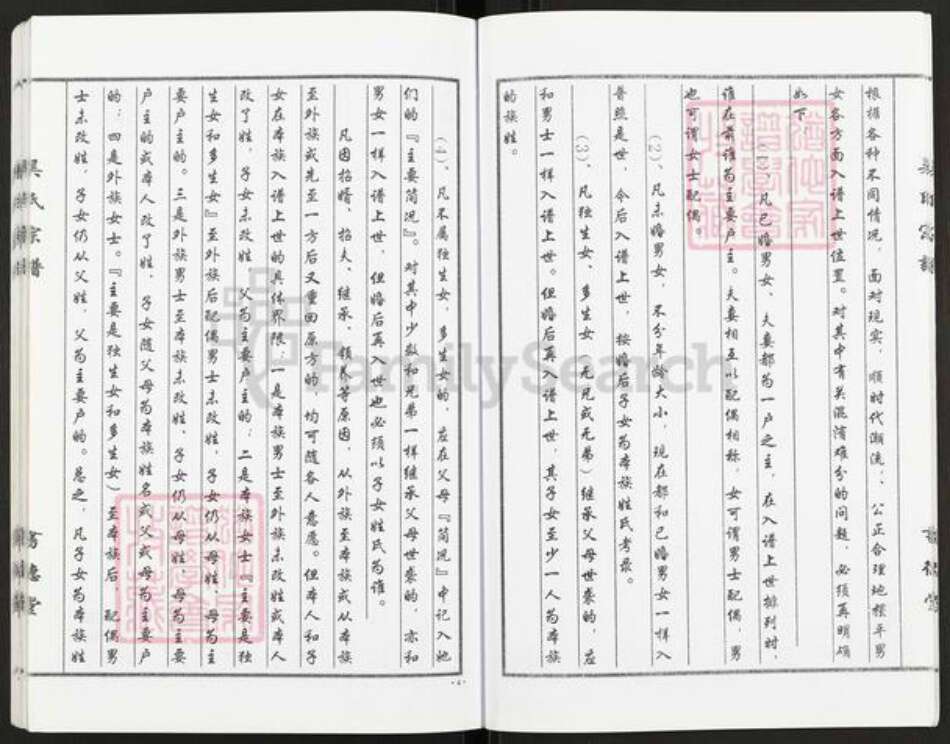 根据各种不同情况，面对现实，顺时代潮流，公正合理地标年男
女各方面入谱上世位置。对其中有关混淆难分的问题，必须再明确
如下
(1)、凡已婚男女、夫妻都为一户之主，在入谱上世排列时，
谁在前谁为主要户主。夫妻相互以配偶相称，女可谓男士配偶，男
也可谓女士配偶。
(2)、凡未婚男女，不分年龄大小，现在都和已婚男女一样入
普照是世，今后入谱上世，按婚后子女为本族姓氏考录。
(3)、凡独生女、多生女（无兄或无弟）继承父母世袭的，应
和男士一样入谱上世。但婚后再入谱上世，其子女至少一人为本族
的族姓。
(4)、凡不属独生女，多生女的，应在父母『简况』中记入她
们的『主要简况』。对其中少数和兄弟一样继承父母世袭的，亦和
男女一样入谱上世，但婚后再入世也必须以子女姓氏为准。
凡因招婿、招夫、继承、领养等原因，从外族至本族或从本族
至外族或先至一方后又重回原方的，均可随各人意愿。但本人和子
女在本族入谱上世的具体界限：一是本族男士至外族未改姓或本人
改了姓，子女未改姓，父为主要户主的；二是本族女士『主要是独
生女和多生女』至外族后配偶男士未改姓，子女仍从母姓，母为主
要户主的。三是外族男士至本族未改姓，子女仍从母姓，母为主要
户主的或本人改了姓，子女随父母为本族姓名或父或母为主要户
的：四是外族女士。『主要是独生女和多生女）至本族后，配偶男
士未改姓，子女仍从父姓，父为主要户的。总之，凡子女为本族姓
吴氏宗谱
FamilySearch